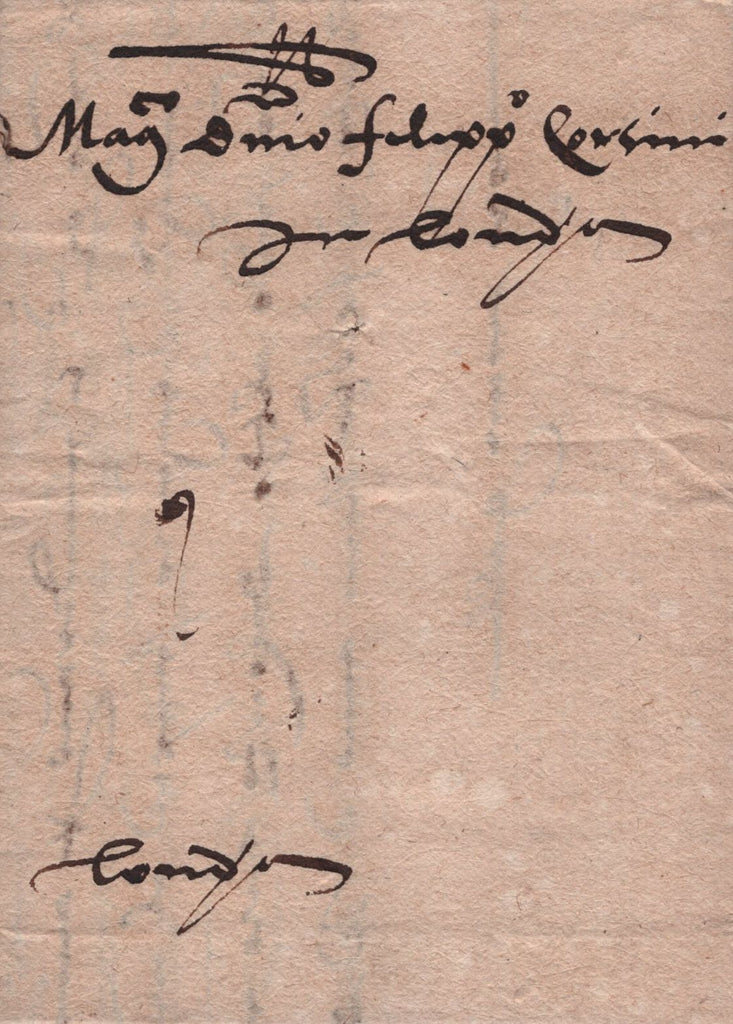 Mag^co Dnio filipp^o Corsini
In Londra
Londra